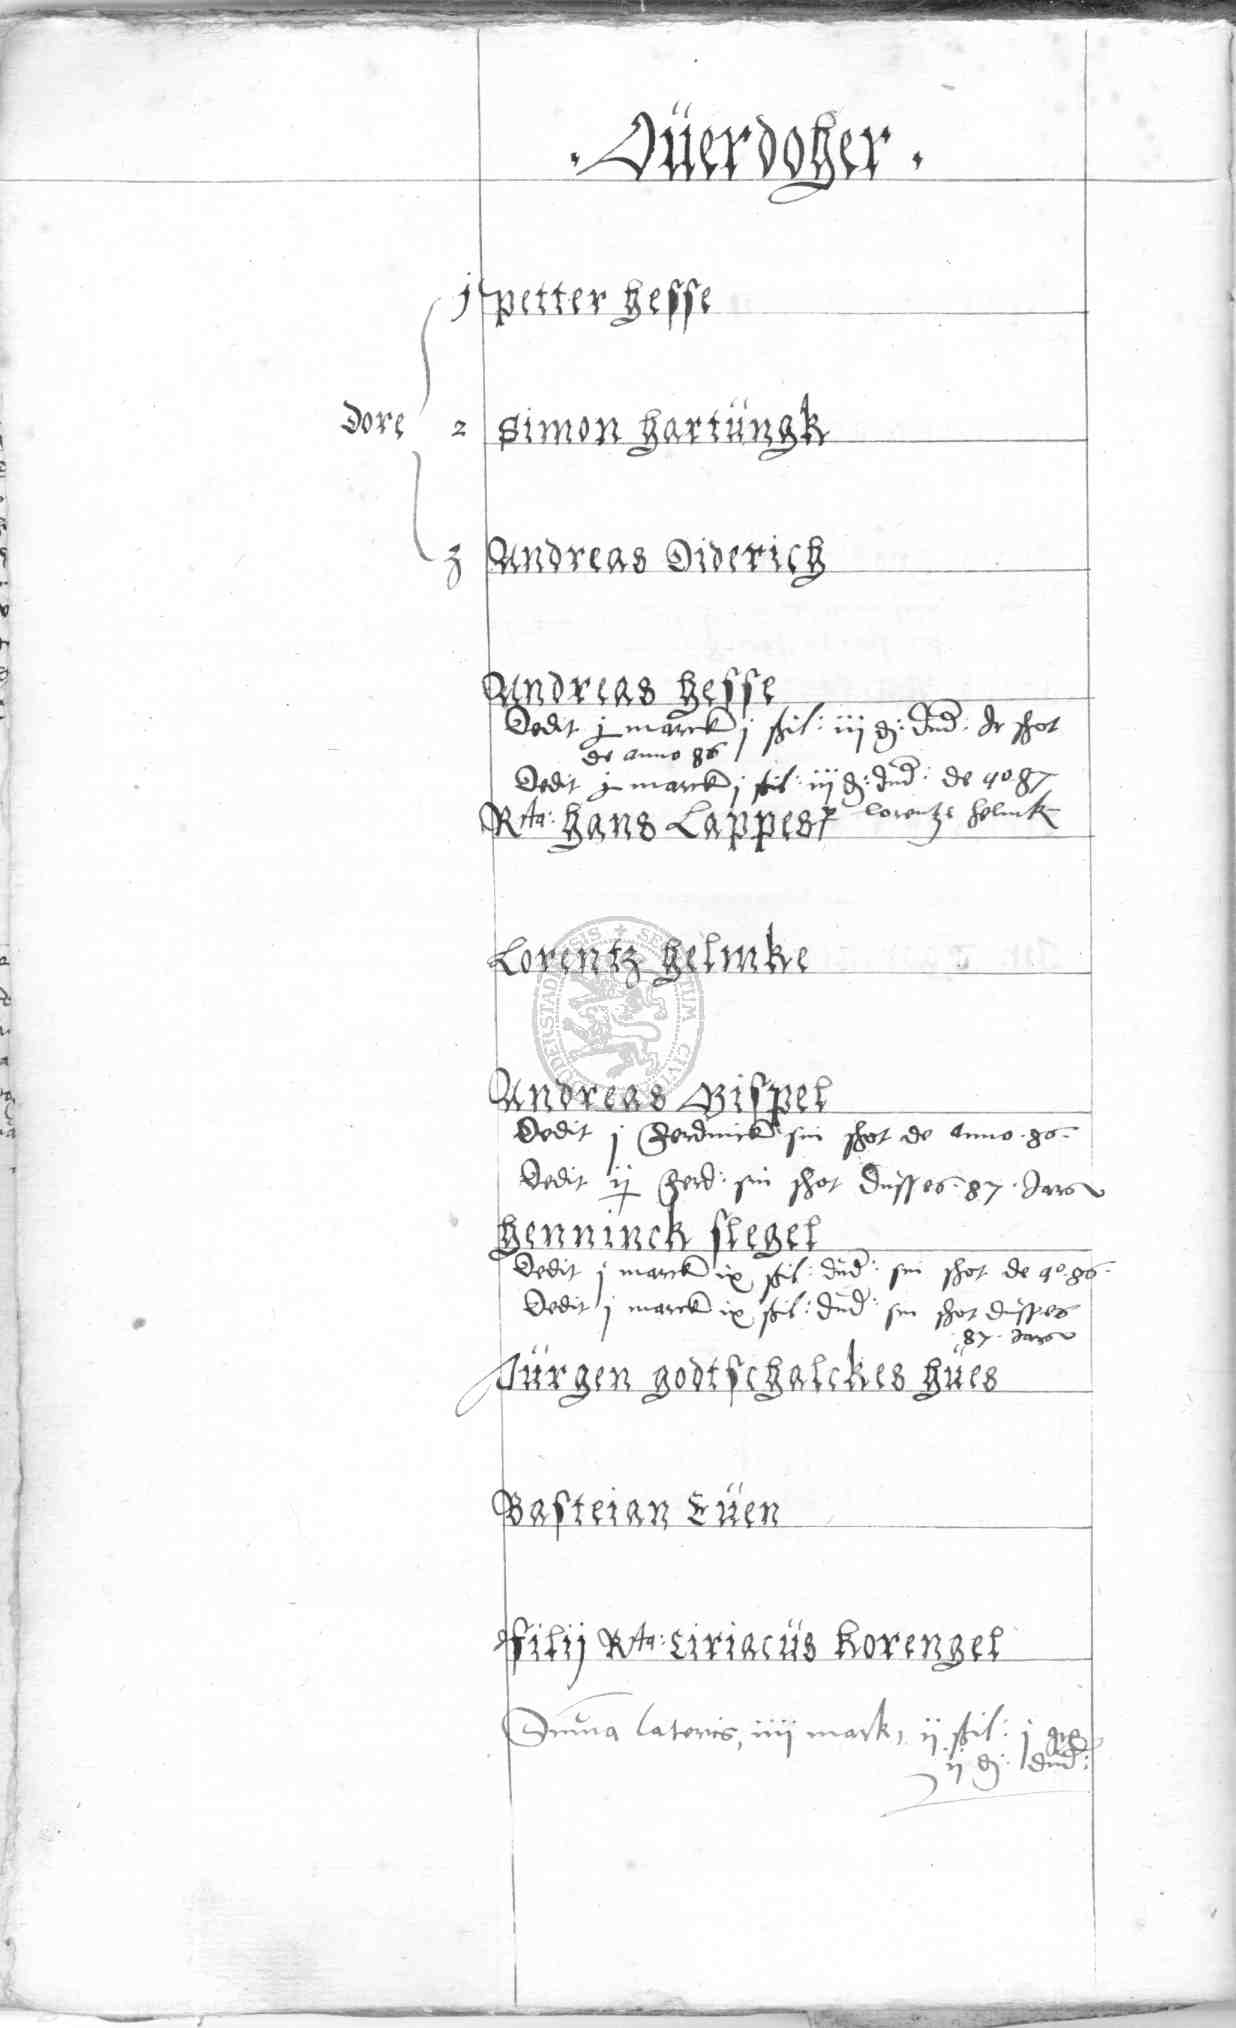 . Oüerdoher .
j petter hesse
Dore 2 Simon hartüngk
3 Andreas Diderich
Andreas hesse
Dedit j marck j ßil: iij d: dud: dr shot
de anno 86
Dedit j marck j ßil: iij d: dud: de ao 87
Rta: hans Lappes lorentz helmk
Lorentz helmke
Andreas Bispel
Dedit j ferdinck sin shot de anno 86.
Dedit ij ferd: sin shot düsses 87. Jars
henninck slegel
Dedit j marck ix ßil: dud: sin shot de ao 86.
Dedit j marck ix ßil: dud: sin shot düsses
87. Jars
Jürgen godtschalckes hües
Basteian Eüen
ffilij Rta: Ciriacüs Korengel
Suma lateris, iiij mark, ij ßil: j
ij d: dud: